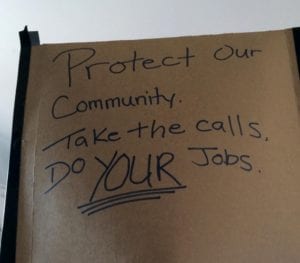 Protect Our
Community.
Take the calls.
Do YOUR Jobs.